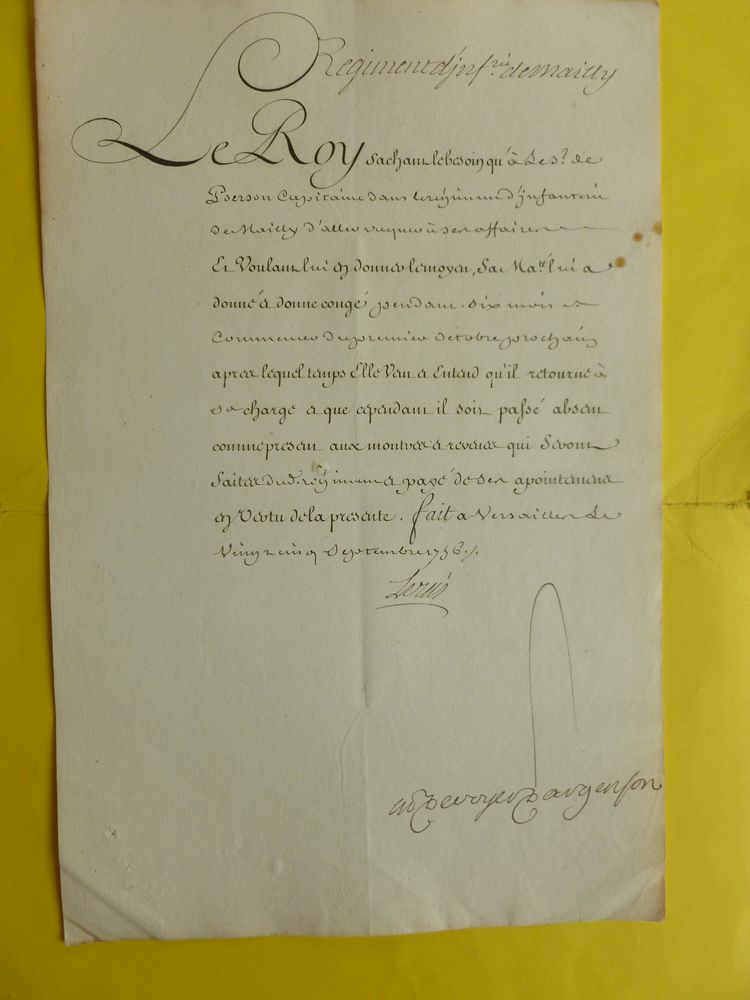 Regiment d'jnf.rie de Mailly
Le Roy sachant le besoin qu'à le S.r de
Pierson Capitaine dans le regiment d'jnfanterie
de Mailly d'aller vaquer à ses affaires
Et Voulant lui en donner le moyen, Sa Ma.té lui a
donné et donne congé pendant six mois a
Commencer du premier Octobre prochain
apres lequel temps Elle Veut et Entend qu'il retourne à
sa charge et que cependant il soit passé absent
comme present aux montres et reveues qui Seront
faites dud. regiment et payé de ses apointemens
en Vertu de la presente. fait a Versailles Le
Vingt cinq Septembre 1756./.
Louis
M P de voyer d'argenson